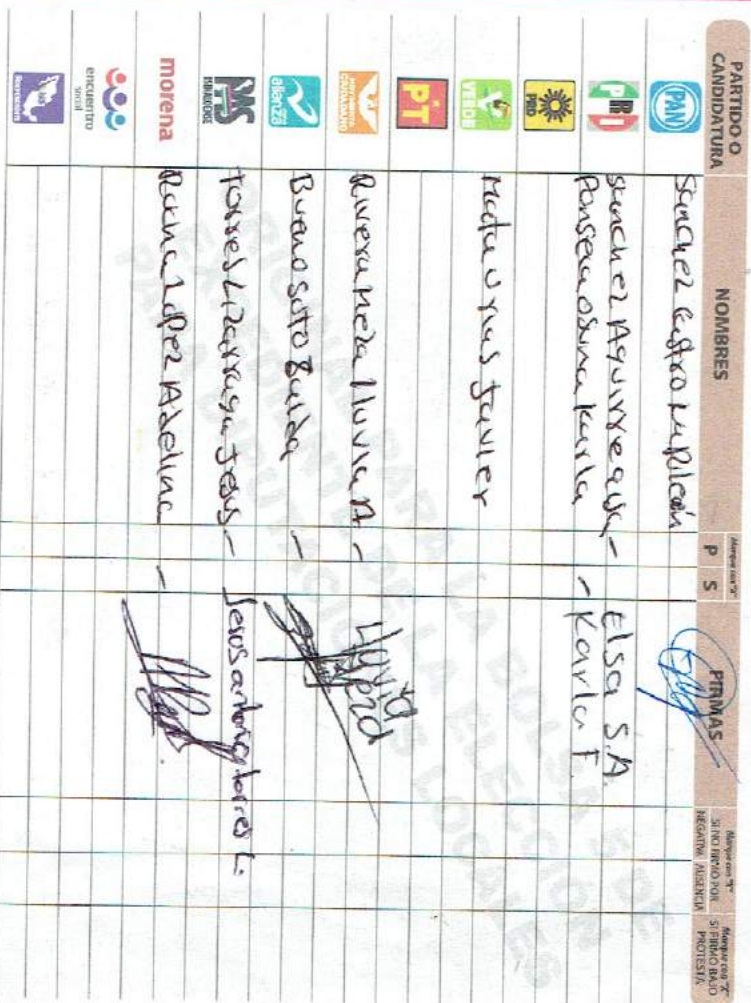 PARTIDO O CANDIDATURA
NOMBRES
Marque con "X"
P S
FIRMAS
Marque con "X" SI NO FIRMÓ POR NEGATIVA AUSENCIA
Marque con "X" SI FIRMÓ BAJO PROTESTA
PAN Sanchez Castro Napoleón
PRI Sanchez Aguirre - Elsa S.A.
Karla - Karla F.
PRD
VERDE Mata Urias Javier
PT
MOVIMIENTO CIUDADANO Rivera Meza Lluvia A -
alianza Bueno Soto Zulda -
PAS SINALOENSE Torres Lizarraga Jesus - Jesus antonio torres L.
morena Rocha Lopez Adelina -
encuentro social
ORIGINAL PARA LA BOLSA 5 DE
EXPEDIENTE DE LA ELECCIÓN
PARA DIPUTACIONES LOCALES